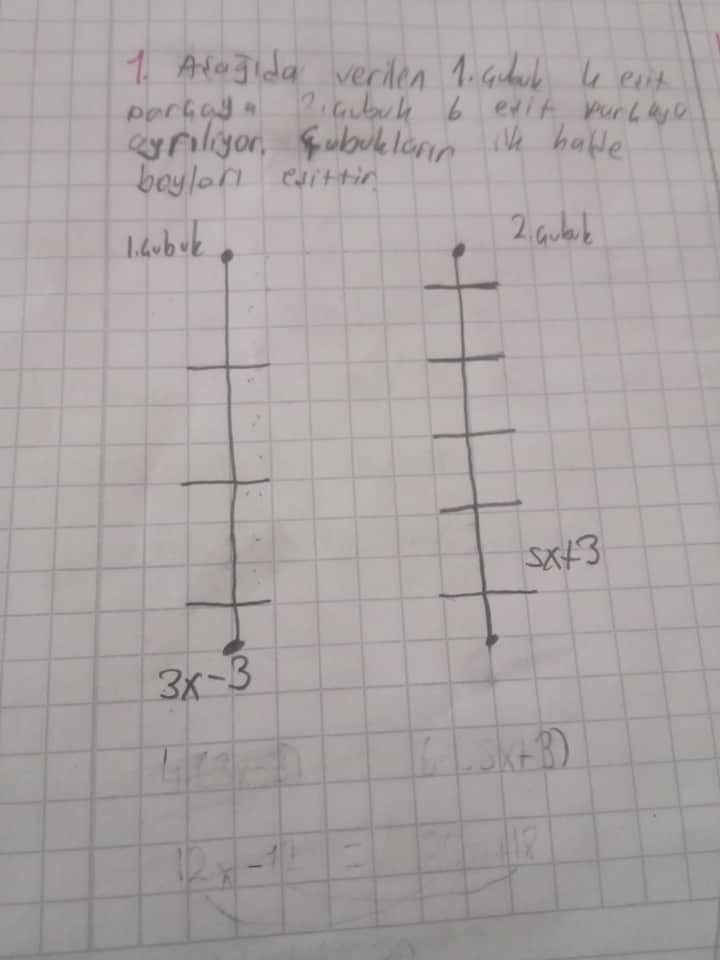 1. Aşağıda verilen 1. Çubuk 4 eşit
parçaya 2. Çubuk 6 eşit parçaya
ayrılıyor. Çubukların ilk halde
boyları eşittir.
1. Çubuk
2. Çubuk
5x+3
3x-3
5x+3)
12x -12 = 18